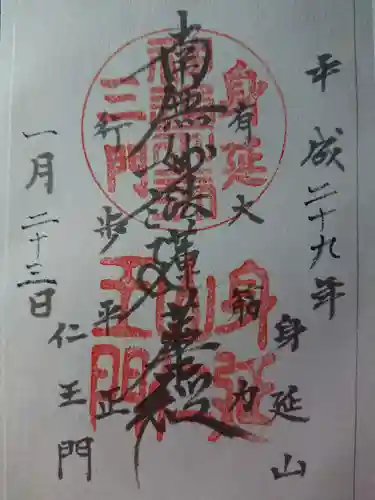 平成二十九年
身延山
有大筋力
南無妙法蓮華経
行歩平正
仁王門
一月二十三日
身延山
三門
身延山
仁王門